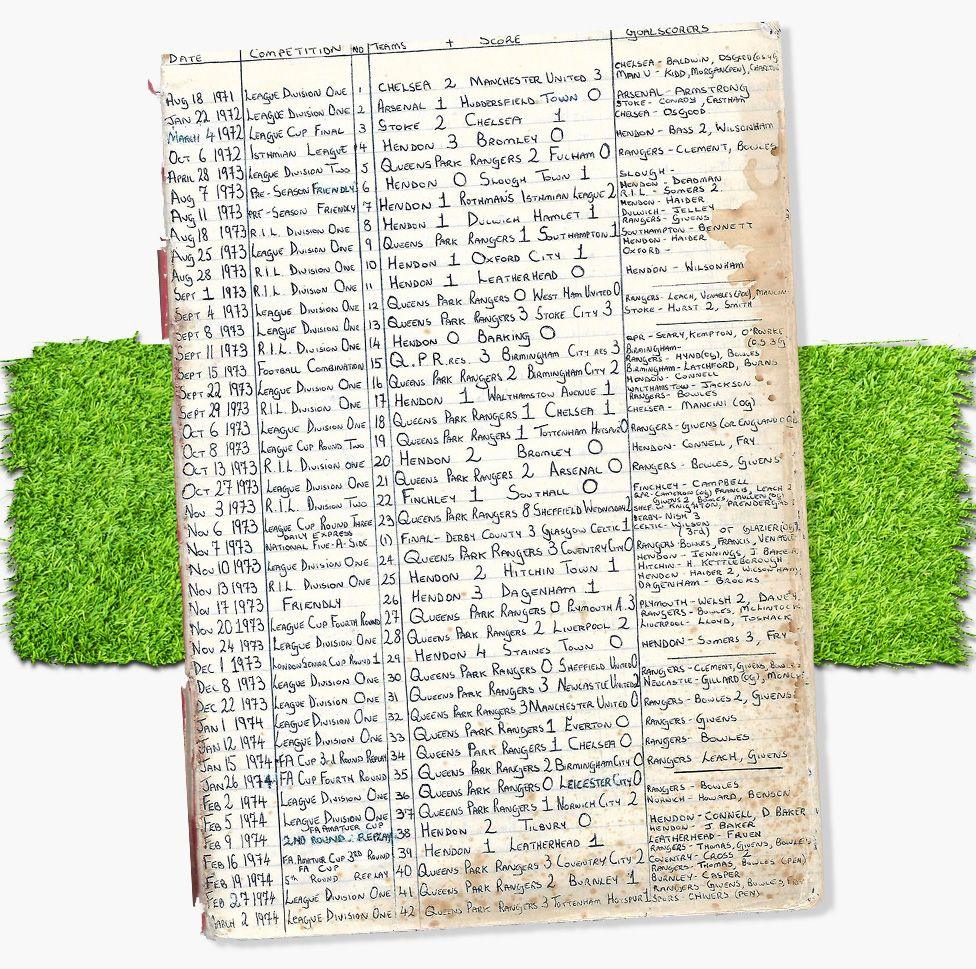 DATE COMPETITION NO TEAMS + SCORE GOALSCORERS
AUG 18 1971 LEAGUE DIVISION ONE 1 CHELSEA 2 MANCHESTER UNITED 3 CHELSEA - BALDWIN, OSGOOD MAN U - KIDD, MORGAN(PEN), CHARLTON
JAN 22 1972 LEAGUE DIVISION ONE 2 ARSENAL 1 HUDDERSFIELD TOWN 0 ARSENAL - ARMSTRONG
MARCH 4 1972 LEAGUE CUP FINAL 3 STOKE 2 CHELSEA 1 STOKE - CONROY, EASTHAM CHELSEA - OSGOOD
OCT 6 1972 ISTHMIAN LEAGUE 4 HENDON 3 BROMLEY 0 HENDON - BASS 2, WILSONHAM
APRIL 28 1973 LEAGUE DIVISION TWO 5 QUEENS PARK RANGERS 2 FULHAM 0 RANGERS - CLEMENT, BOWLES
AUG 7 1973 PRE-SEASON FRIENDLY 6 HENDON 0 SLOUGH TOWN 1 SLOUGH -
AUG 11 1973 PRE-SEASON FRIENDLY 7 HENDON 1 ROTHMAN'S ISTHMIAN LEAGUE 2 HENDON - DEADMAN R.I.L. - SOMERS 2
AUG 18 1973 R.I.L. DIVISION ONE 8 HENDON 1 DULWICH HAMLET 1 HENDON - HAIDER DULWICH - JELLEY
AUG 25 1973 LEAGUE DIVISION ONE 9 QUEENS PARK RANGERS 1 SOUTHAMPTON 1 RANGERS - GIVENS SOUTHAMPTON - BENNETT
AUG 28 1973 R.I.L. DIVISION ONE 10 HENDON 1 OXFORD CITY 1 HENDON - HAIDER OXFORD -
SEPT 1 1973 R.I.L. DIVISION ONE 11 HENDON 1 LEATHERHEAD 0 HENDON - WILSONHAM
SEPT 4 1973 LEAGUE DIVISION ONE 12 QUEENS PARK RANGERS 0 WEST HAM UNITED 0
SEPT 8 1973 LEAGUE DIVISION ONE 13 QUEENS PARK RANGERS 3 STOKE CITY 3 RANGERS - LEACH, VENABLES(PEN), MANCINI STOKE - HURST 2, SMITH
SEPT 11 1973 R.I.L. DIVISION ONE 14 HENDON 0 BARKING 0
SEPT 15 1973 FOOTBALL COMBINATION 15 Q.P.R. RES. 3 BIRMINGHAM CITY RES 3 QPR - SEARY, KEMPTON, O'ROURKE BIRMINGHAM-
SEPT 22 1973 LEAGUE DIVISION ONE 16 QUEENS PARK RANGERS 2 BIRMINGHAM CITY 2 RANGERS - HYND(OG), BOWLES BIRMINGHAM - LATCHFORD, BURNS
SEPT 29 1973 R.I.L. DIVISION ONE 17 HENDON 1 WALTHAMSTOW AVENUE 1 HENDON - CONNELL WALTHAMSTOW - JACKSON
OCT 6 1973 LEAGUE DIVISION ONE 18 QUEENS PARK RANGERS 1 CHELSEA 1 RANGERS - BOWLES CHELSEA - MANCINI (OG)
OCT 8 1973 LEAGUE CUP ROUND TWO 19 QUEENS PARK RANGERS 1 TOTTENHAM HOTSPUR 0 RANGERS - GIVENS (OR ENGLAND OG)
OCT 13 1973 R.I.L. DIVISION ONE 20 HENDON 2 BROMLEY 0 HENDON - CONNELL, FRY
OCT 27 1973 LEAGUE DIVISION ONE 21 QUEENS PARK RANGERS 2 ARSENAL 0 RANGERS - BOWLES, GIVENS
NOV 3 1973 R.I.L. DIVISION TWO 22 FINCHLEY 1 SOUTHALL 0 FINCHLEY - CAMPBELL
NOV 6 1973 LEAGUE CUP ROUND THREE 23 QUEENS PARK RANGERS 8 SHEFFIELD WEDNESDAY 2 QPR - CAMERON(OG) FRANCIS, LEACH 2 GIVENS 2, BOWLES, MULLEN(OG) SHEF W - KNIGHTON, PRENDERGAST
NOV 7 1973 DAILY EXPRESS NATIONAL FIVE-A-SIDE (1) FINAL - DERBY COUNTY 3 GLASGOW CELTIC 1 DERBY - NISH 3 CELTIC - WILSON
NOV 10 1973 LEAGUE DIVISION ONE 24 QUEENS PARK RANGERS 3 COVENTRY CITY 0 (3rd) OF GLAZIER(OG), RANGERS BOWLES, FRANCIS, VENABLES
NOV 13 1973 R.I.L. DIVISION ONE 25 HENDON 2 HITCHIN TOWN 1 HENDON - JENNINGS, J. BAKER HITCHIN - H. KETTLEBOROUGH
NOV 17 1973 FRIENDLY 26 HENDON 3 DAGENHAM 1 HENDON - HAIDER 2, WILSONHAM DAGENHAM - BROOKS
NOV 20 1973 LEAGUE CUP FOURTH ROUND 27 QUEENS PARK RANGERS 0 PLYMOUTH A. 3 PLYMOUTH - WELSH 2, DAVEY
NOV 24 1973 LEAGUE DIVISION ONE 28 QUEENS PARK RANGERS 2 LIVERPOOL 2 RANGERS - BOWLES, McLINTOCK LIVERPOOL - LLOYD, TOSHACK
DEC 1 1973 LONDON SENIOR CUP ROUND 1 29 HENDON 4 STAINES TOWN 0 HENDON - SOMERS 3, FRY
DEC 8 1973 LEAGUE DIVISION ONE 30 QUEENS PARK RANGERS 0 SHEFFIELD UNITED 0
DEC 22 1973 LEAGUE DIVISION ONE 31 QUEENS PARK RANGERS 3 NEWCASTLE UNITED 2 RANGERS - CLEMENT, GIVENS, BOWLES NEWCASTLE - GILLARD (OG),
JAN 1 1974 LEAGUE DIVISION ONE 32 QUEENS PARK RANGERS 3 MANCHESTER UNITED 0 RANGERS - BOWLES 2, GIVENS
JAN 12 1974 LEAGUE DIVISION ONE 33 QUEENS PARK RANGERS 1 EVERTON 0 RANGERS - GIVENS
JAN 15 1974 FA CUP 3rd ROUND REPLAY 34 QUEENS PARK RANGERS 1 CHELSEA 0 RANGERS - BOWLES
JAN 26 1974 FA CUP FOURTH ROUND 35 QUEENS PARK RANGERS 2 BIRMINGHAM CITY 0 RANGERS LEACH, GIVENS
FEB 2 1974 LEAGUE DIVISION ONE 36 QUEENS PARK RANGERS 0 LEICESTER CITY 0
FEB 5 1974 LEAGUE DIVISION ONE 37 QUEENS PARK RANGERS 1 NORWICH CITY 2 RANGERS - BOWLES NORWICH - HOWARD, BENSON
FEB 9 1974 FA AMATUER CUP 2ND ROUND. REPLAY 38 HENDON 2 TILBURY 0 HENDON - CONNELL, D BAKER
FEB 16 1974 FA AMATUER CUP 3RD ROUND 39 HENDON 1 LEATHERHEAD 1 HENDON - J. BAKER LEATHERHEAD - FRUEN
FEB 19 1974 FA CUP 5TH ROUND REPLAY 40 QUEENS PARK RANGERS 3 COVENTRY CITY 2 RANGERS - THOMAS, GIVENS, BOWLES COVENTRY - CROSS 2
FEB 27 1974 LEAGUE DIVISION ONE 41 QUEENS PARK RANGERS 2 BURNLEY 1 RANGERS THOMAS, BOWLES (PEN) BURNLEY - CASPER
MARCH 2 1974 LEAGUE DIVISION ONE 42 QUEENS PARK RANGERS 3 TOTTENHAM HOTSPUR 1 RANGERS - GIVENS, BOWLES, SPURS - CHIVERS (PEN)